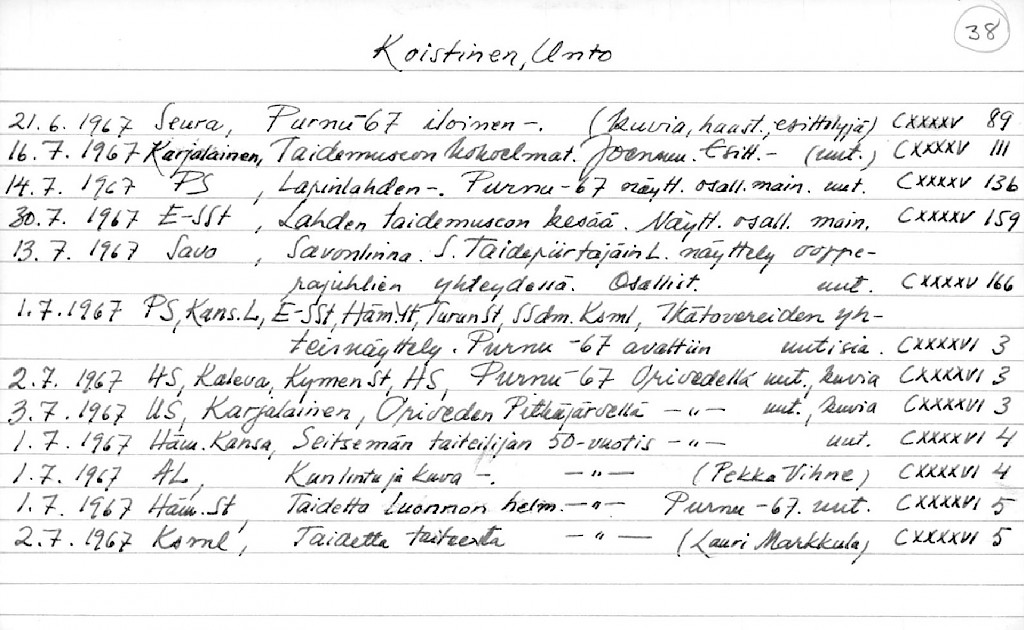 38
Koistinen, Unto
21.6.1967 Seura, Purnu-67 iloinen -. (kuvia, haast., esittelyjä) CXXXXV 89
16.7.1967 Karjalainen, Taidemuseon kokoelmat. Joensuu. Esitt.- (uut.) CXXXXV 111
14.7.1967 PS, Lapinlahden -. Purnu-67 näytt. osall. main. uut. CXXXXV 136
30.7.1967 E-SSt, Lahden taidemuseon kesää. Näytt. osall. main. CXXXXV 159
13.7.1967 Savo, Savonlinna. S. Taidepiirtäjäin L. näyttely ooppe-
rajuhlien yhteydessä. Osallist. uut. CXXXXV 166
1.7.1967 PS, Kans.L, E-SSt, Häm.St, TurunSt, SSdm. Ksml, Ikätovereiden yh-
teisnäyttely. Purnu-67 avattiin uutisia. CXXXXVI 3
2.7.1967 HS, Kaleva, KymenSt, HS, Purnu-67 Orivedellä uut., kuvia CXXXXVI 3
3.7.1967 US, Karjalainen, Oriveden Pitkäjärvellä -"- uut., kuvia CXXXXVI 3
1.7.1967 Häm. Kansa, Seitsemän taiteilijan 50-vuotis -"- uut. CXXXXVI 4
1.7.1967 AL, Kun lintu ja kuva -. -"- (Pekka Vihne) CXXXXVI 4
1.7.1967 Häm.St, Taidetta luonnon helm. -"- Purnu-67. uut. CXXXXVI 5
2.7.1967 Ksml, Taidetta -"- (Lauri Markkula) CXXXXVI 5